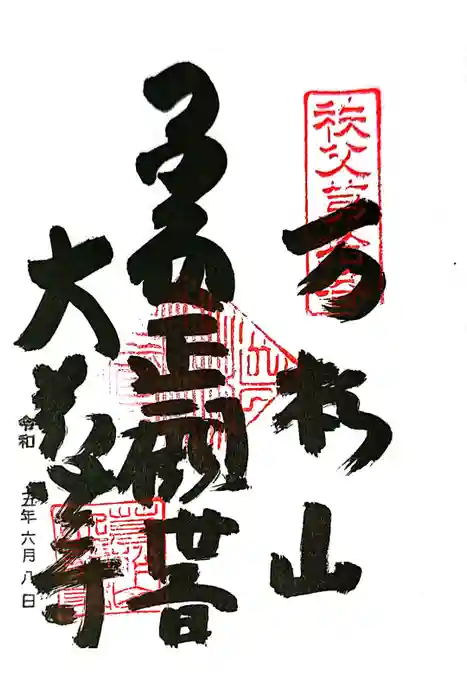 秩父第拾番
万松山
正観世音
大慈寺
令和 五年六月八日